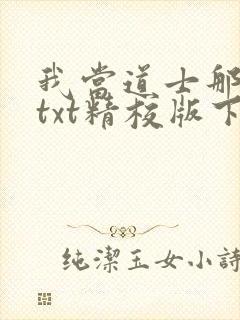 我當道士那
txt精校版下
純潔玉女小詩